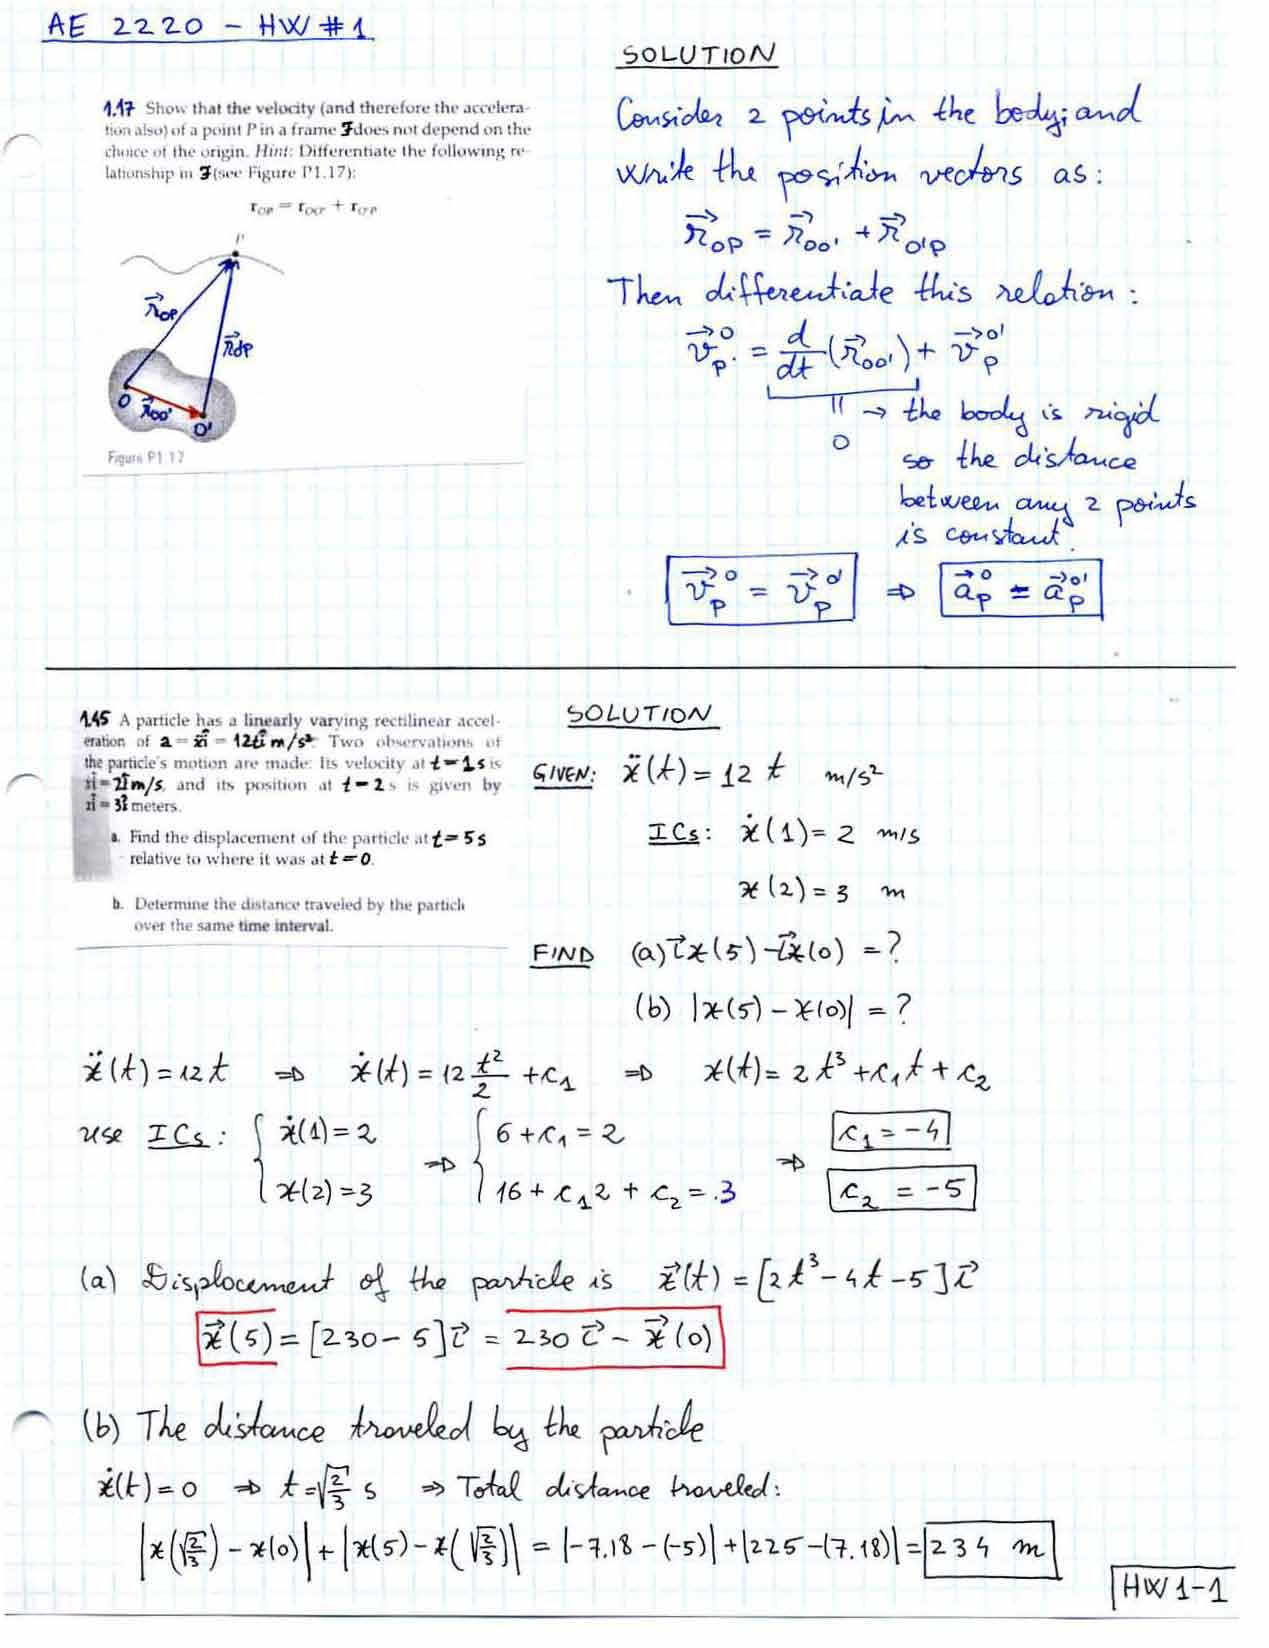 AE 2220 - HW #1
1.17 Show that the velocity (and therefore the accelera-
tion also) of a point P in a frame F does not depend on the
choice of the origin. Hint: Differentiate the following re-
lationship in F (see Figure P1.17):
r_OP = r_OO' + r_O'P
P
r⃗_OP
r⃗_O'P
O
r⃗_OO'
O'
Figure P1.17
SOLUTION
Consider 2 points in the body; and
write the position vectors as:
r⃗_OP = r⃗_OO' + r⃗_O'P
Then differentiate this relation:
v⃗_P^O = d/dt (r⃗_OO') + v⃗_P^O'
|| → the body is rigid
0
so the distance
between any 2 points
is constant.
v⃗_P^O = v⃗_P^O' ⇒ a⃗_P^O = a⃗_P^O'
1.45 A particle has a linearly varying rectilinear accel-
eration of a = ẍî = 12tî m/s². Two observations of
the particle's motion are made: Its velocity at t = 1 s is
ẋî = 2î m/s, and its position at t = 2 s is given by
xî = 3î meters.
a. Find the displacement of the particle at t = 5 s
relative to where it was at t = 0.
b. Determine the distance traveled by the particle
over the same time interval.
SOLUTION
GIVEN: ẍ(t) = 12 t m/s²
ICs: ẋ(1) = 2 m/s
x(2) = 3 m
FIND (a) i⃗x(5) - i⃗x(0) = ?
(b) |x(5) - x(0)| = ?
ẍ(t) = 12 t ⇒ ẋ(t) = 12 t²/2 + c₁ ⇒ x(t) = 2 t³ + c₁ t + c₂
use ICs: { ẋ(1) = 2 ⇒ { 6 + c₁ = 2 ⇒ c₁ = -4
x(2) = 3 16 + c₁ 2 + c₂ = 3 c₂ = -5
(a) Displacement of the particle is x⃗(t) = [2t³ - 4t - 5] i⃗
x⃗(5) = [230 - 5] i⃗ = 230 i⃗ - x⃗(0)
(b) The distance traveled by the particle
ẋ(t) = 0 ⇒ t = √(2/3) s ⇒ Total distance traveled:
|x(√(2/3)) - x(0)| + |x(5) - x(√(2/3))| = |-7.18 - (-5)| + |225 - (7.18)| = 234 m
HW 1-1